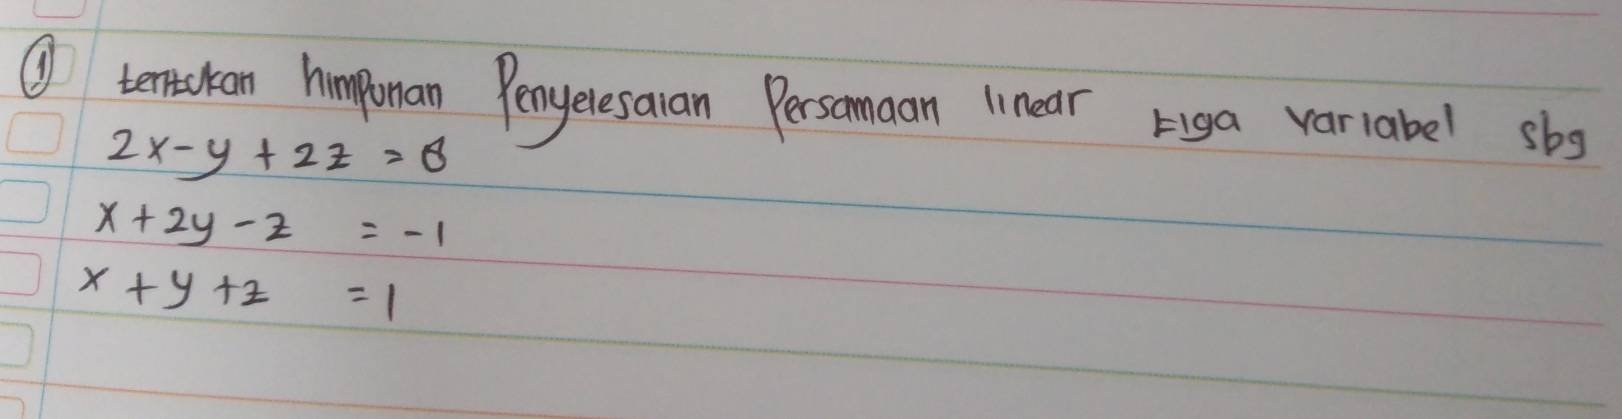 ① tentukan himpunan Penyelesaian Persamaan linear tiga variabel sbg
2x - y + 2z = 8
x + 2y - z = -1
x + y + z = 1